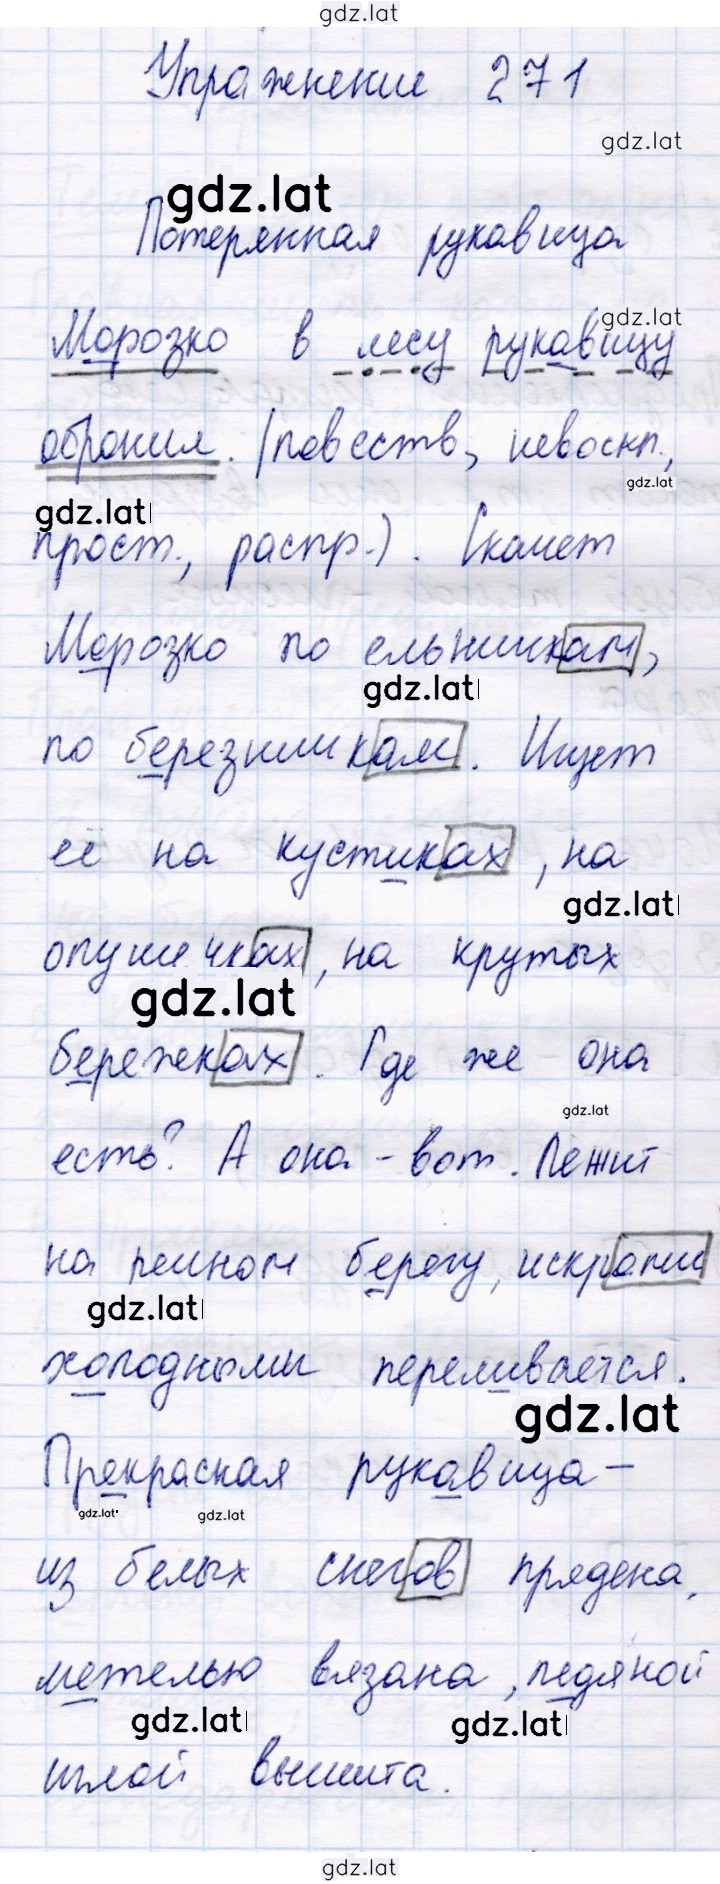 gdz.lat
Упражнение 271
gdz.lat
gdz.lat
Потерянная рукавица
gdz.lat
Морозко в лесу рукавицу
обронил. (повеств., невоскл.,
gdz.lat
gdz.lat
прост., распр.). Скачет
Морозко по ельничкам,
gdz.lat
по березничкам. Ищет
её на кустиках, на
gdz.lat
опушечках, на крутых
gdz.lat
бережках. Где же она
gdz.lat
есть? А она - вот. Лежит
на речном берегу, искрами
gdz.lat
холодными переливается.
gdz.lat
Прекрасная рукавица -
gdz.lat gdz.lat
из белых снегов прядена,
метелью вязана, ледяной
gdz.lat gdz.lat
иглой вышита.
gdz.lat